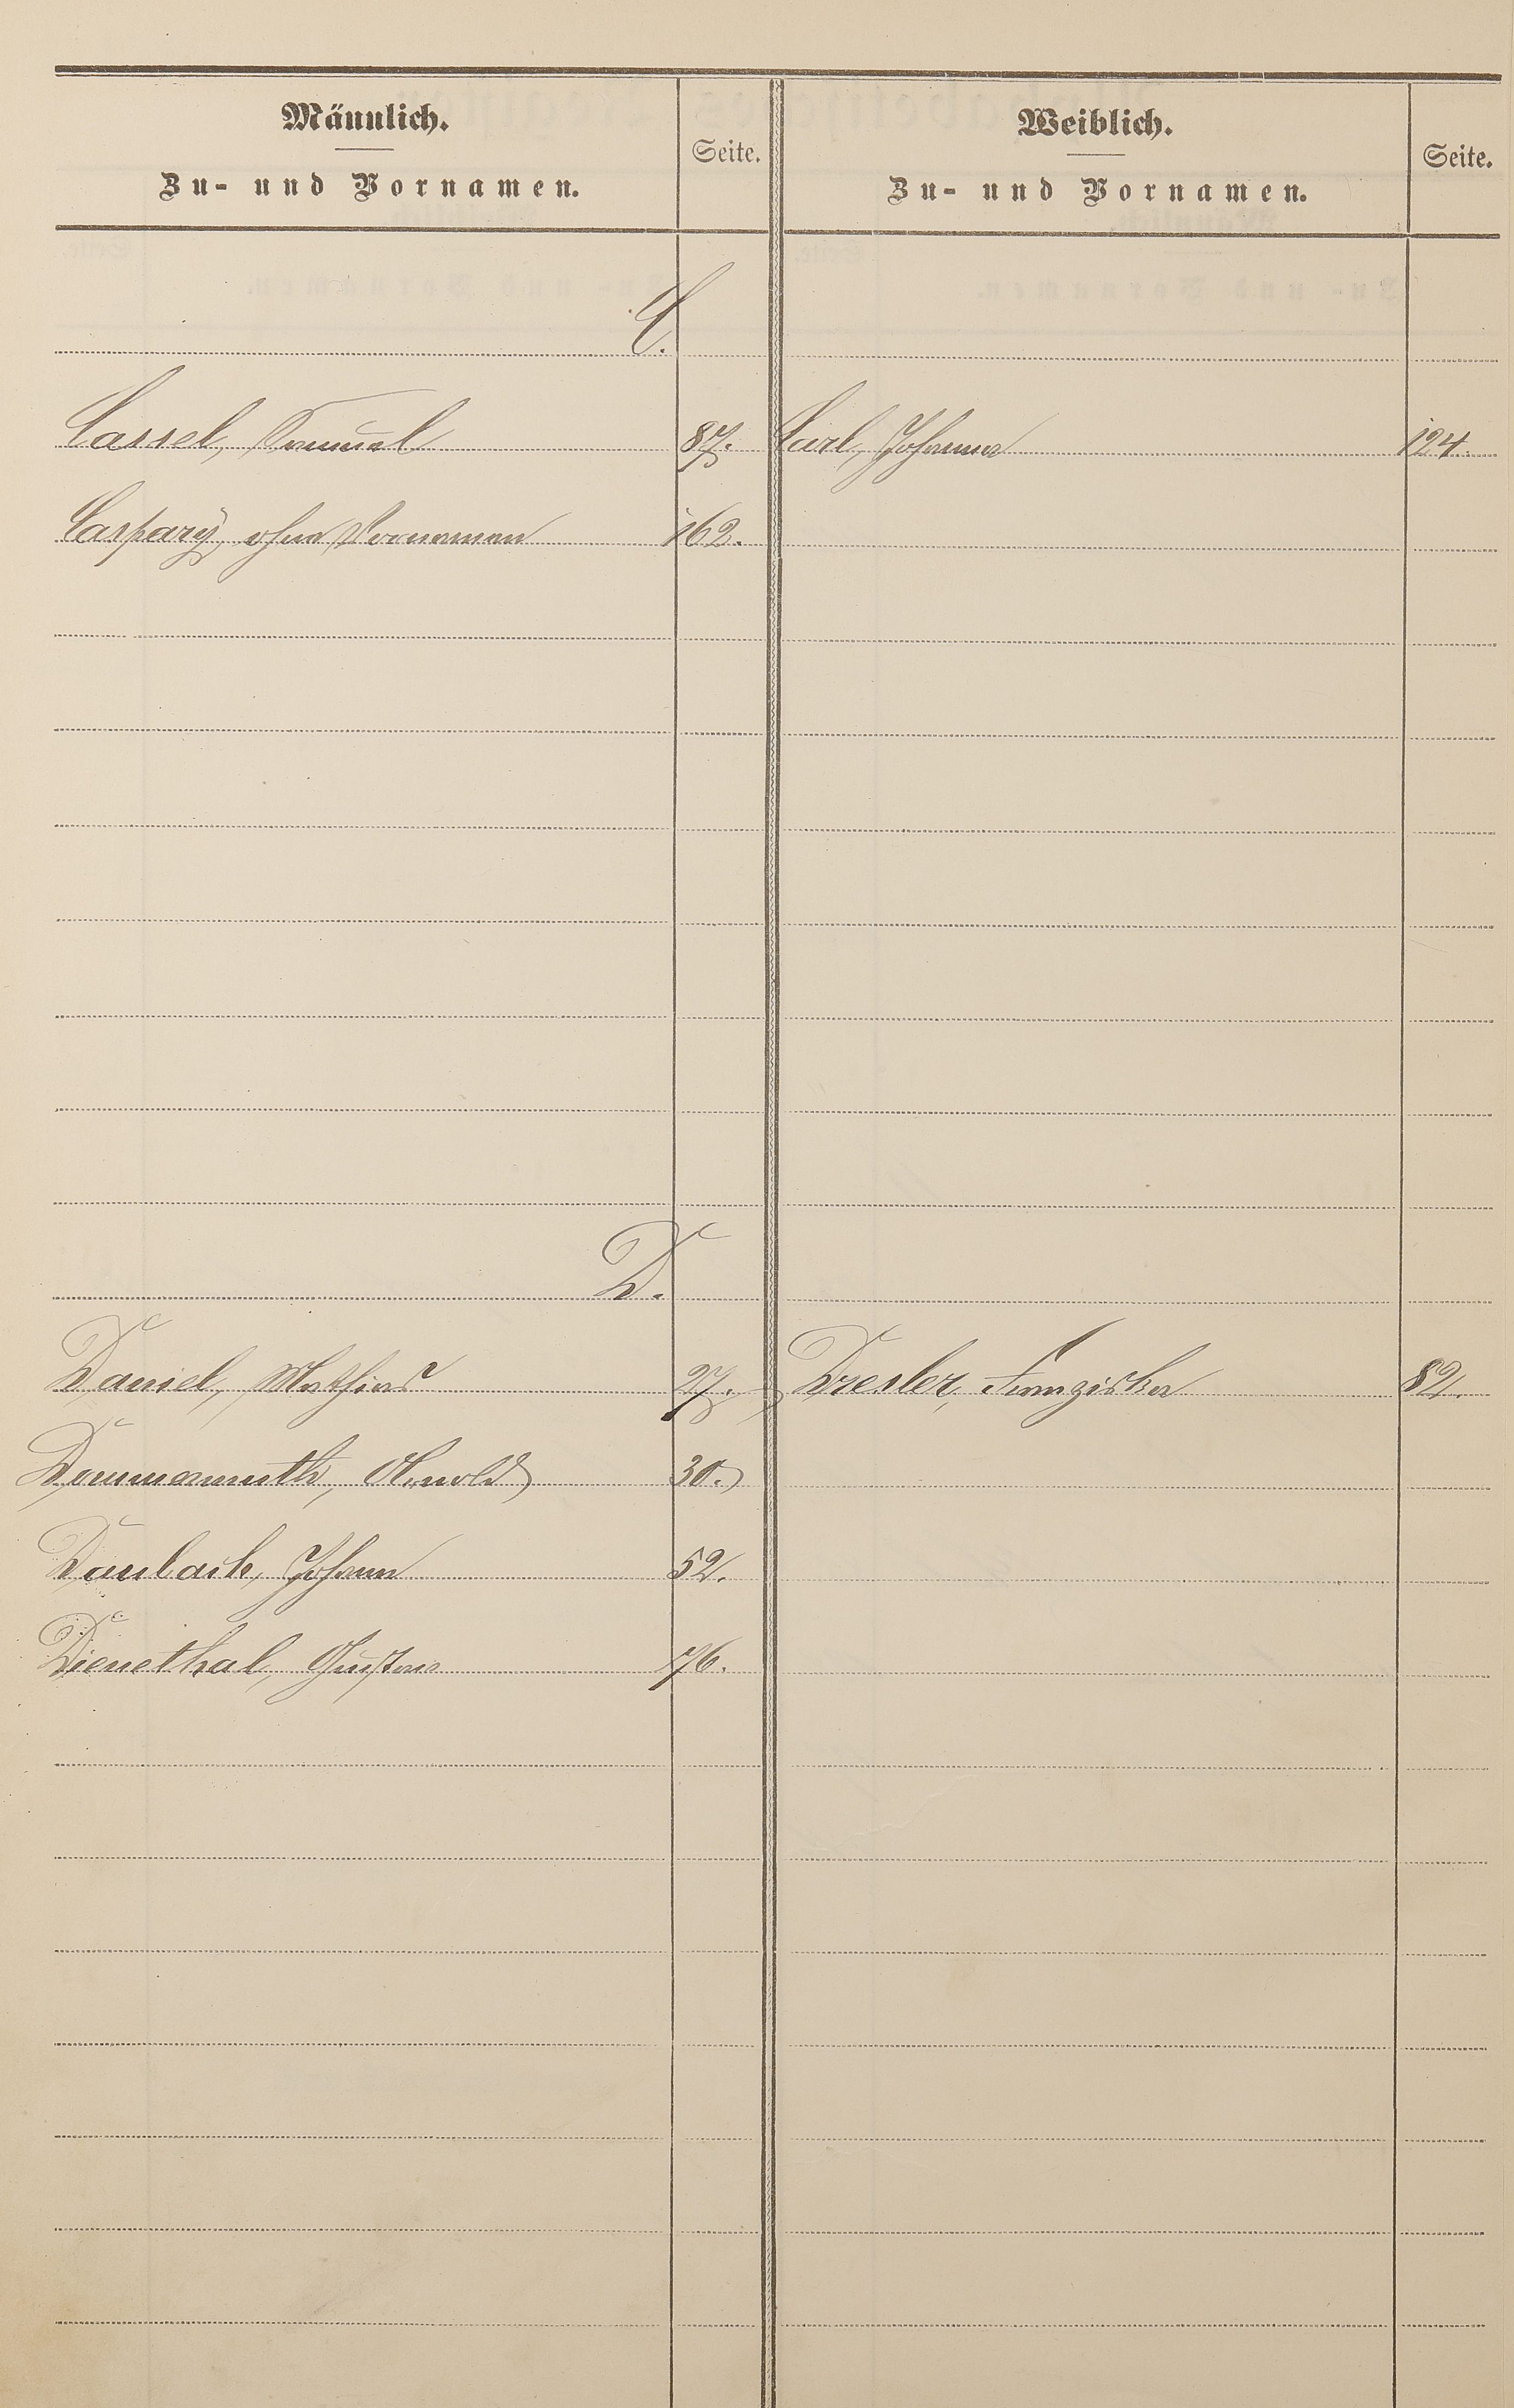 Männlich.
Zu- und Vornamen.
Seite.
Weiblich.
Zu- und Vornamen.
Seite.
C.
Cassel, Samuel 87. Carl, Johanna 124.
Caspary, ohne Vornamen 162.
D.
Daniel, Mathias 27. Dresler, Franziska 82.
Dommermuth, Arnold 30.
Daubach, Johann 52.
Dienethal, Gustav 76.